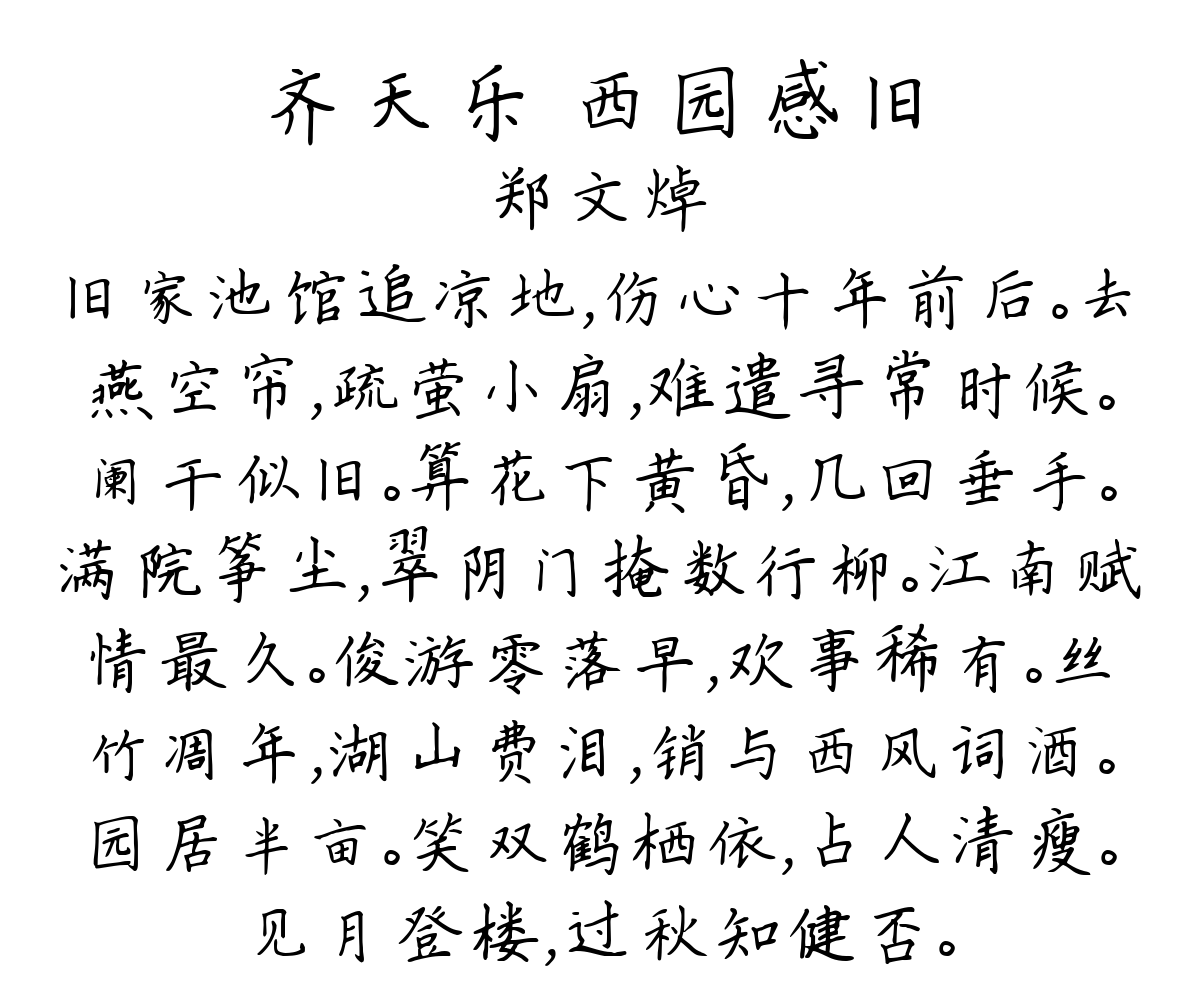 齐天乐 西园感旧
郑文焯
旧家池馆追凉地,伤心十年前后。去
燕空帘,疏萤小扇,难遣寻常时候。
阑干似旧。算花下黄昏,几回垂手。
满院筝尘,翠阴门掩数行柳。江南赋
情最久。俊游零落早,欢事稀有。丝
竹凋年,湖山费泪,销与西风词酒。
园居半亩。笑双鹤栖依,占人清瘦。
见月登楼,过秋知健否。